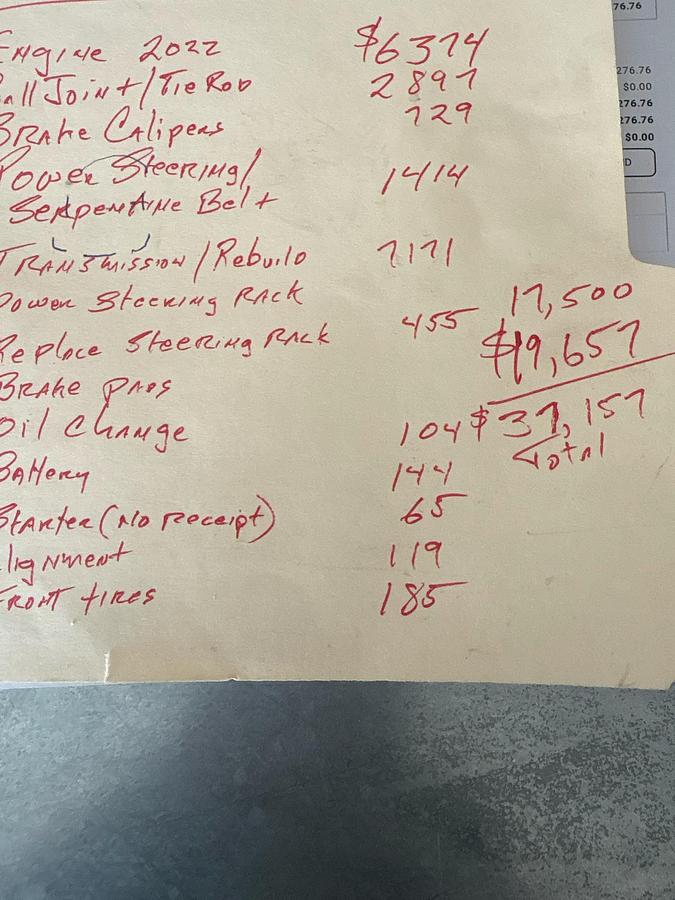 76.76
Engine 2022 $6374
276.76
all Joint/Tie Rod 2897
$0.00
276.76
Brake Calipers 729
276.76
$0.00
Power Steering/ 1414
D
Serpentine Belt
Transmission/Rebuild 7171
Power Steering Rack
17,500
Replace Steering Rack 455
$19,657
Brake Pads
$37,157
Oil Change 104
Total
Battery 144
Starter (No Receipt) 65
lignment 119
Front tires 185